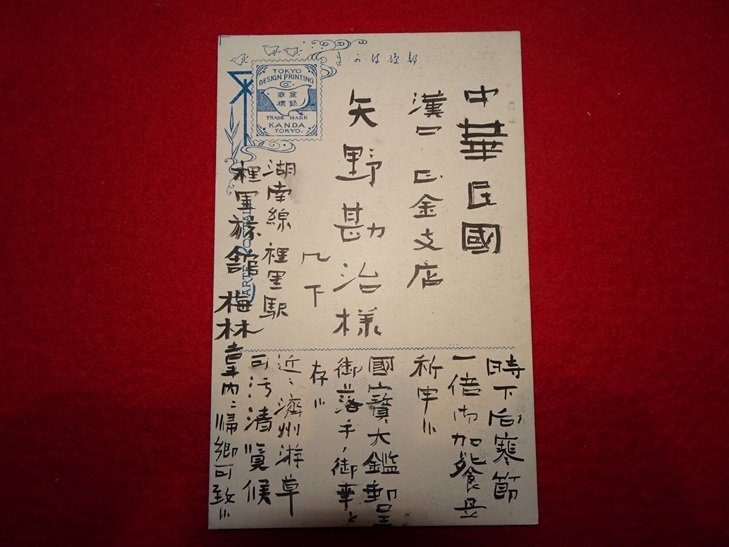 きがは便郵
TOKYO
DESIGN PRINTING
TRADE MARK
KANDA
TOKYO.
中華民國
漢口正金支店
矢野勘治様
几下
湖南線裡里駅
裡里旅館 梅林
時下向寒節
一倍御加餐是
祈申候
國寶大鑑郵呈
御落手御華と
存候
近々済州游草
可汚清覧候
年内ニ帰郷可致候